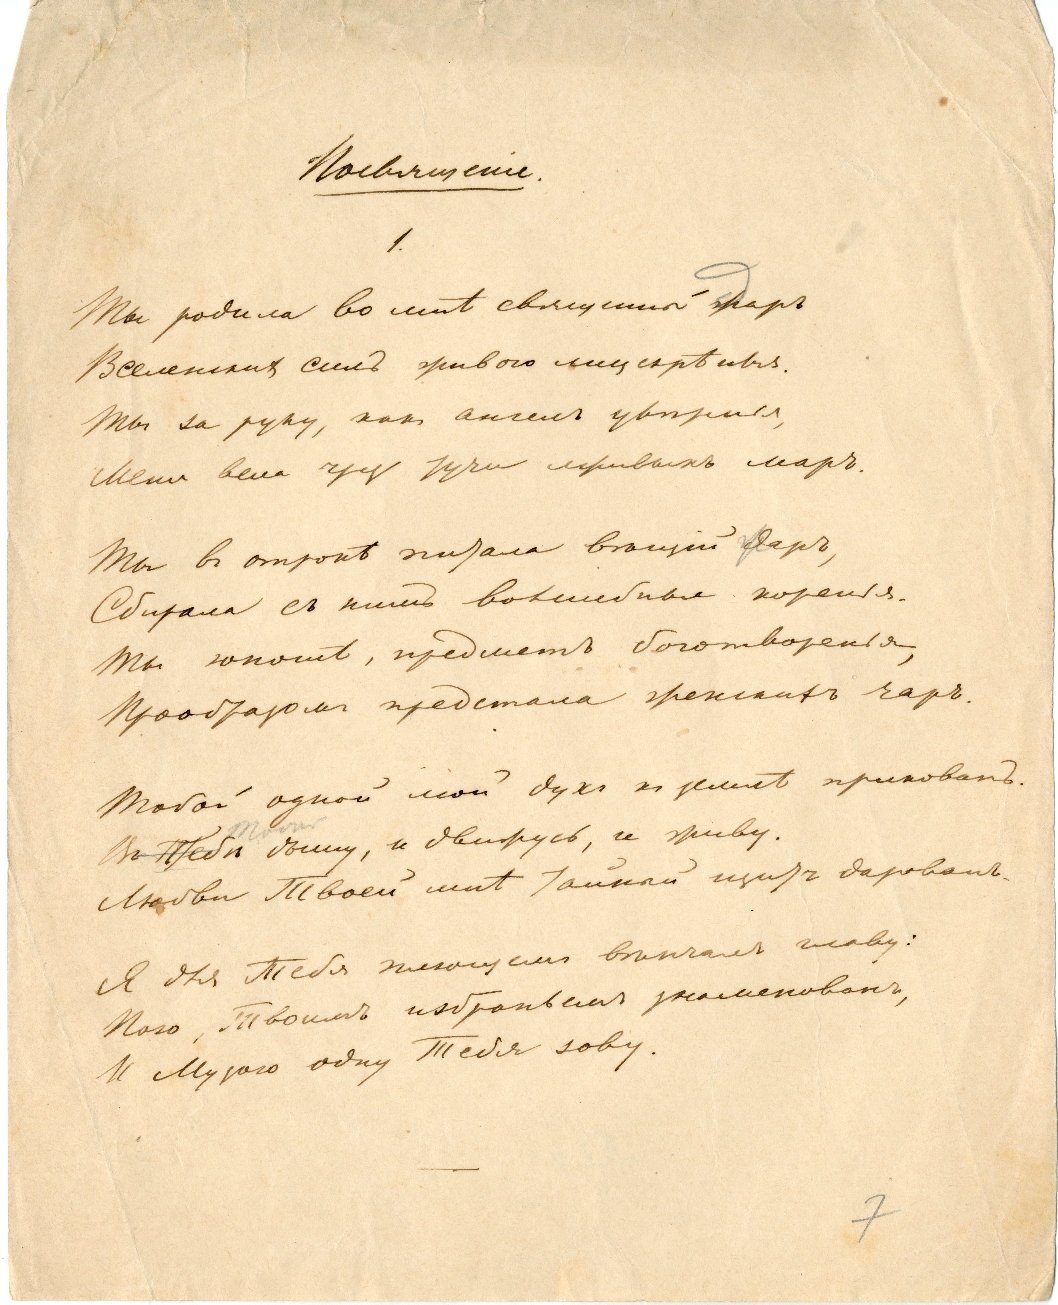 Посвященіе.
1.
Ты родила во мнѣ священный жаръ
Вселенскихъ силъ живого лицезрѣнья.
Ты за руку, какъ ангелъ увѣренія,
Меня вела чрезъ тучи лживыхъ маръ.
Ты въ отрокѣ питала вѣщій даръ,
Сбирала съ нимъ волшебныя коренія.
Ты юношѣ, предметъ боготворенія,
Прообразомъ предстала женскихъ чаръ.
Тобой одной мой духъ къ землѣ прикованъ.
Тобою
Въ Тебѣ дышу, и движусь, и живу.
Любви Твоей мнѣ тайный щитъ дарованъ.
Я для Тебя плющемъ вѣнчалъ главу:
Пою, Твоимъ избраньемъ знаменованъ,
И Музою одну Тебя зову.
7